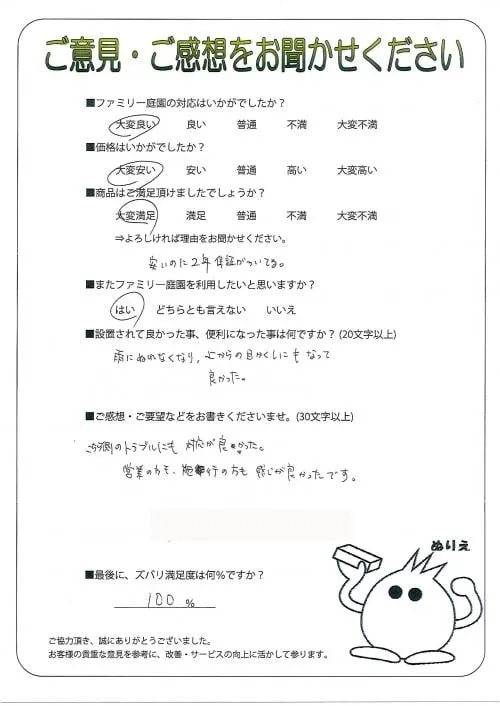 ご意見・ご感想をお聞かせください
■ファミリー庭園の対応はいかがでしたか？
大変良い 良い 普通 不満 大変不満
■価格はいかがでしたか？
大変安い 安い 普通 高い 大変高い
■商品はご満足頂けましたでしょうか？
大変満足 満足 普通 不満 大変不満
⇒よろしければ理由をお聞かせください。
安いのに2年保証がついてる。
■またファミリー庭園を利用したいと思いますか？
はい どちらとも言えない いいえ
■設置されて良かった事、便利になった事は何ですか？(20文字以上)
雨にぬれなくなり、上からの目かくしにもなって
良かった。
■ご感想・ご要望などをお書きくださいませ。(30文字以上)
こちら側のトラブルにも対応が良かった。
営業の方も、施行の方も感じが良かったです。
ぬりえ
■最後に、ズバリ満足度は何％ですか？
100 %
ご協力頂き、誠にありがとうございました。
お客様の貴重な意見を参考に、改善・サービスの向上に活かして参ります。